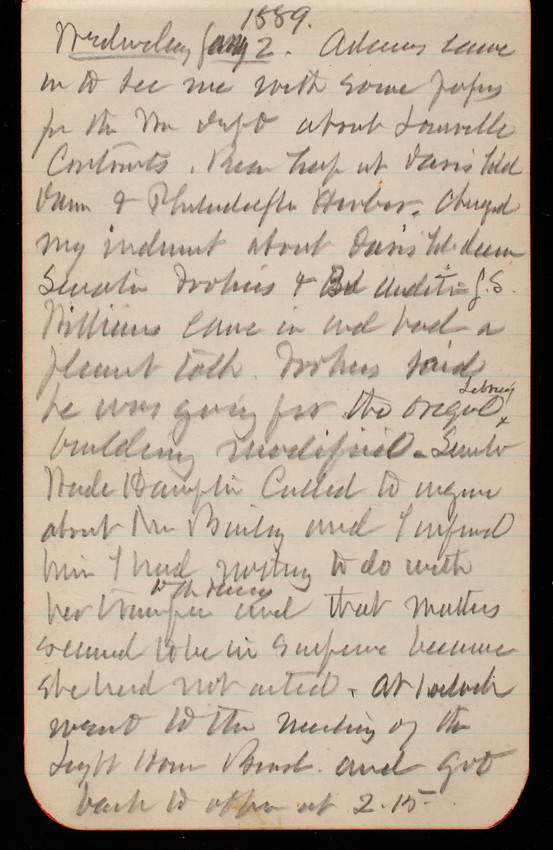 1889.
Wednesday Jany 2. Adams came
in to see me with some papers
for the War Dept about Louisville
Contracts. at Davis Isld
Dam & Philadelphia Harbor. Changed
my about Davis Isld dam
Senator & 3d Auditor J. S.
Williams came in and had a
pleasant talk. said
Library
he was going for the original
building modified. Senator
Wade Hampton Called to inquire
about Mrs Bailey and I informed
him I had nothing to do with
to the
her transfer and that matters
seemed to be in suspense because
she had not acted. At 1 oclock
went to the meeting of the
Light House Board and got
back to office at 2.15-